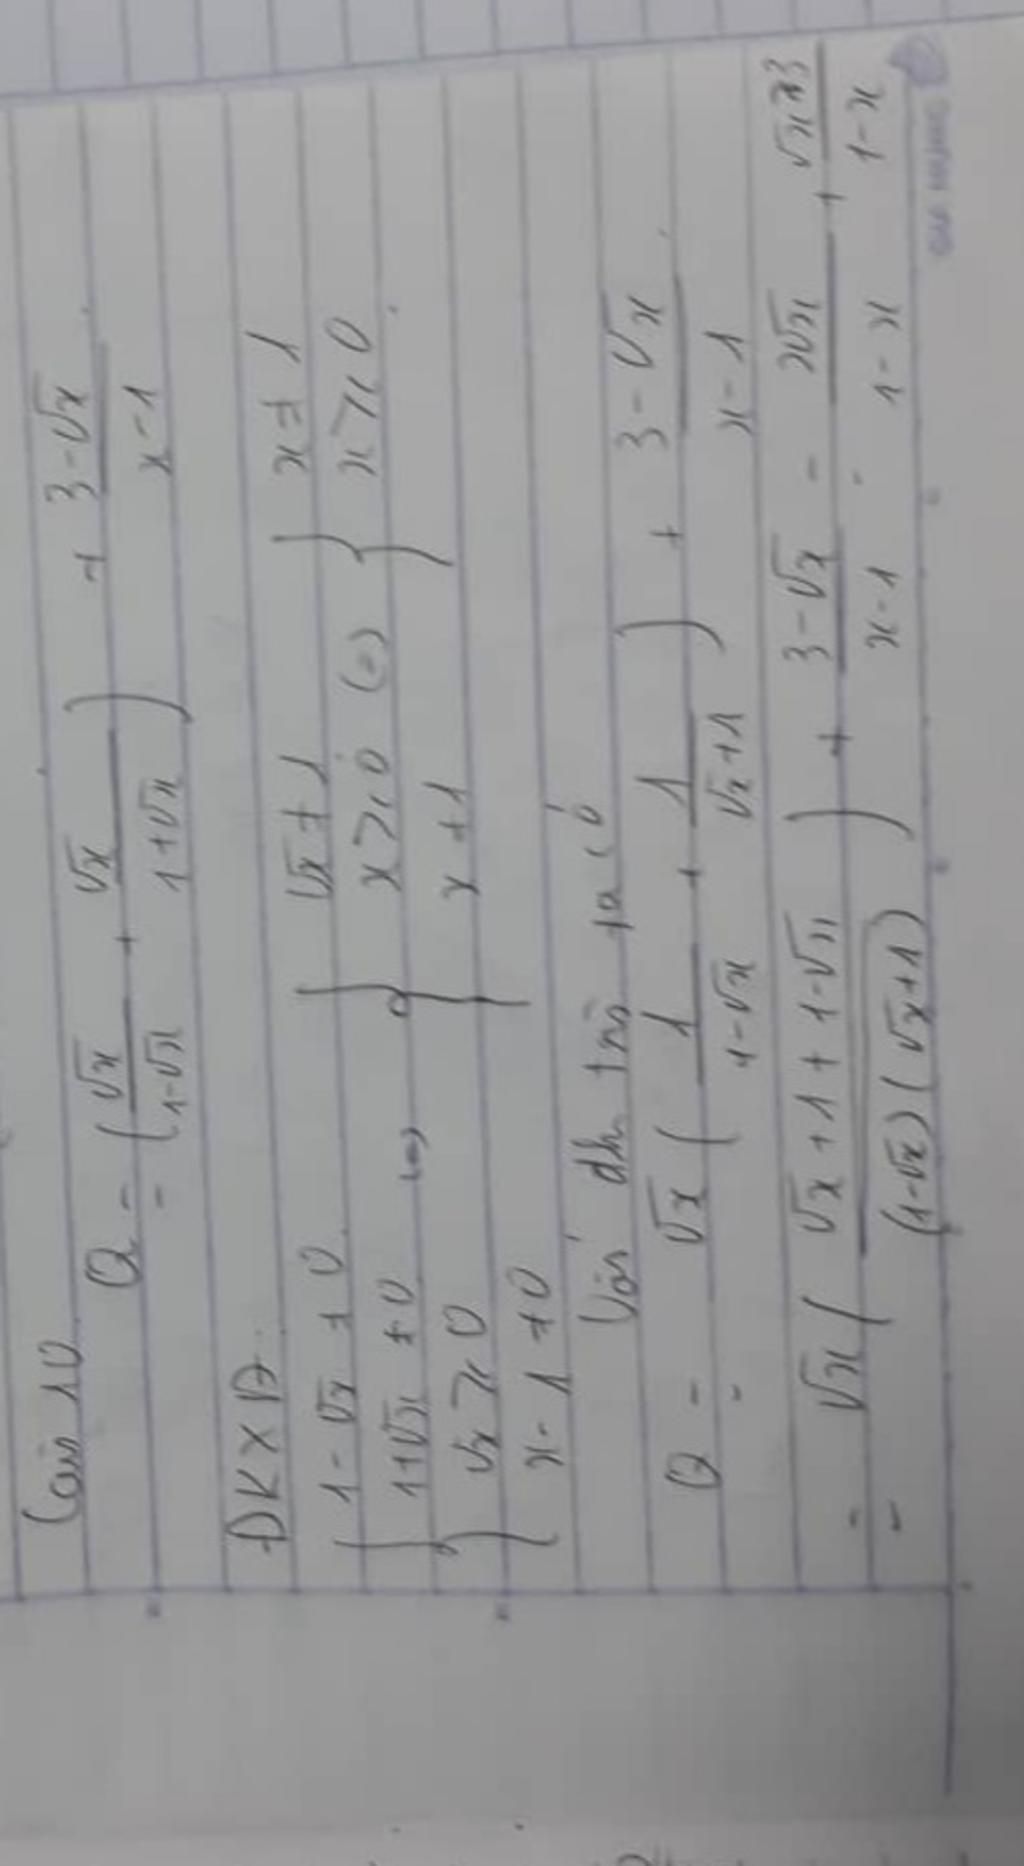 Câu 10
Q = (√x/(1-√x) + √x/(1+√x)) + (3-√x)/(x-1)
ĐKXĐ
{ 1-√x ≠ 0 √x ≠ 1 { x ≠ 1
1+√x ≠ 0 (=) { x ≥ 0 (=) x ≥ 0
√x ≥ 0 x ≠ 1
x-1 ≠ 0
Với đk trên ta có
Q = √x (1/(1-√x) + 1/(√x+1)) + (3-√x)/(x-1)
= √x ((√x+1+1-√x)/((1-√x)(√x+1))) + (3-√x)/(x-1) = 2√x/(1-x) + /(1-x)